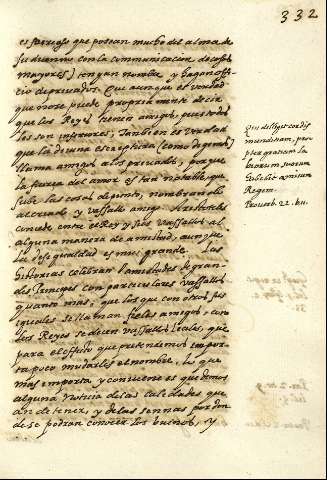 332
es forzoso que posean mucho del alma de
su dueño con la communicacion de cosas
mayores) tengan nombre y hagan offi-
cio de priuados. Que aunque es verdad
que no se puede propriamente decir
que los Reyes tienen amigos, pues todos
les son inferiores; Tambien es verdad
que la diuina escriptura (como deçimos)
llama amigos a los priuados, porque
la fuerça del amor es tan notable, que
sube las cosas de punto, nombrando
al criado, y vassallo amigo. Aristoteles
concede entre el Rey y sus vassallos al-
guna manera de amistad, aunque
la desegualdad es muy grande. Las
historias celebran l'amistades de gran-
des Principes con particulares vassallos
quanto mas, que los que con otros sus
iguales se llaman fieles amigos, con
los Reyes se dicen vassallos leales, que
para el effecto que pretendemos impor-
ta poco mudarles el nombre. Lo que
mas importa y conuiene es que demos
alguna noticia de las calidades que
an de tener, y de las señas por don-
de se podran conocer los buenos, y
Qui diligit cordis
munditiam, prop-
ter gratiam la-
biorum suorum
habebit amicum
Regem.
Prouerb. 22. nu.